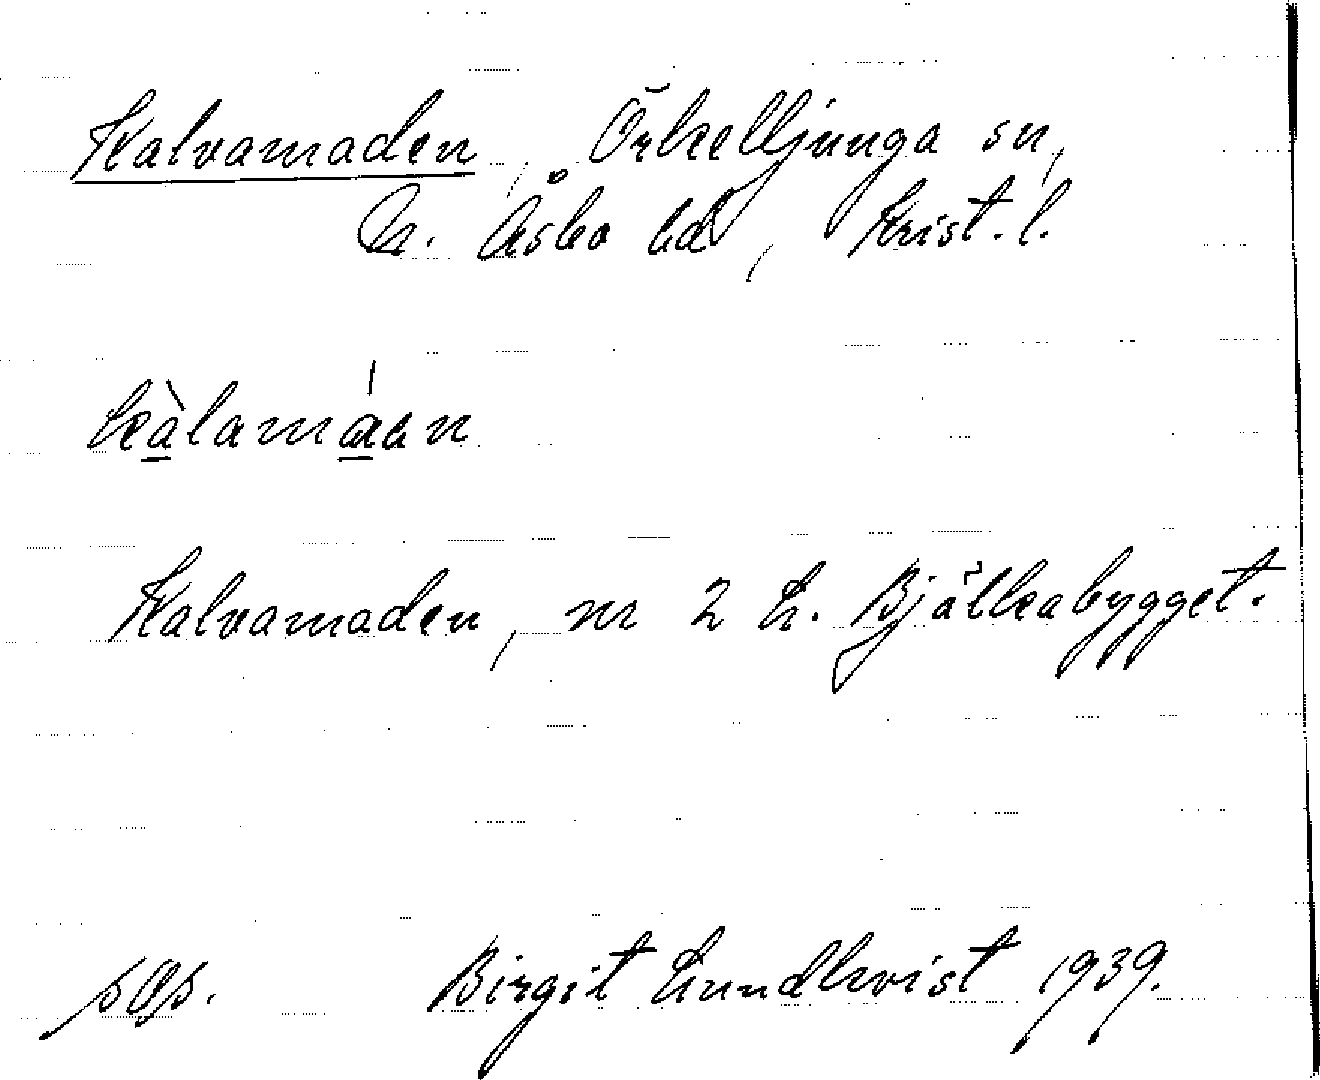 Kalvamaden, Örkelljunga sn,
N. Åsbo hd, Krist. l.
kàlamáan
Kalvamaden, nr 2 h. Bjälkabygget.
Birgit Lundkvist 1939.